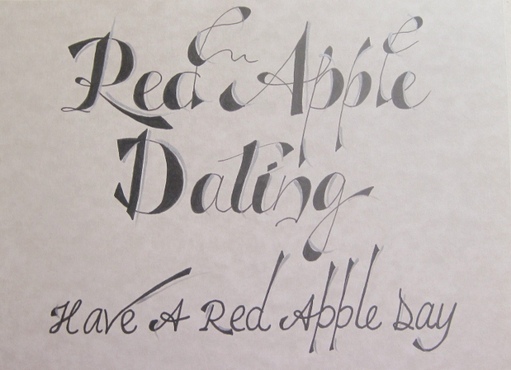 Red Apple
Dating
Have A Red Apple Day